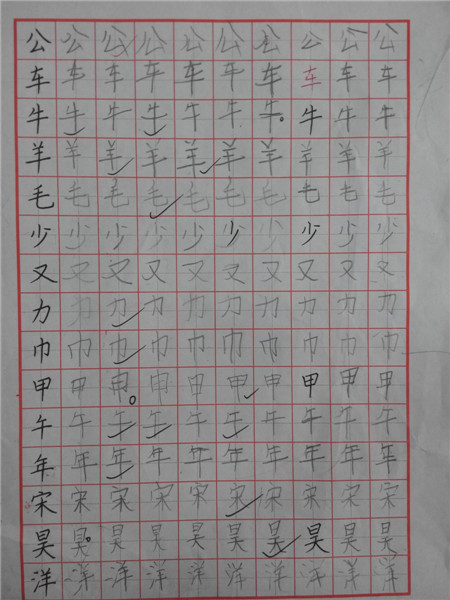 公公公公公公公公公公
车车车车车车车车车车
牛牛牛牛牛牛牛牛牛牛
羊羊羊羊羊羊羊羊羊羊
毛毛毛毛毛毛毛毛毛毛
少少少少少少少少少少
又又又又又又又又又又
力力力力力力力力力力
巾巾巾巾巾巾巾巾巾巾
甲甲甲甲甲甲甲甲甲甲
午午午午午午午午午午
年年年年年年年年年年
宋宋宋宋宋宋宋宋宋宋
昊昊昊昊昊昊昊昊昊昊
洋洋洋洋洋洋洋洋洋洋